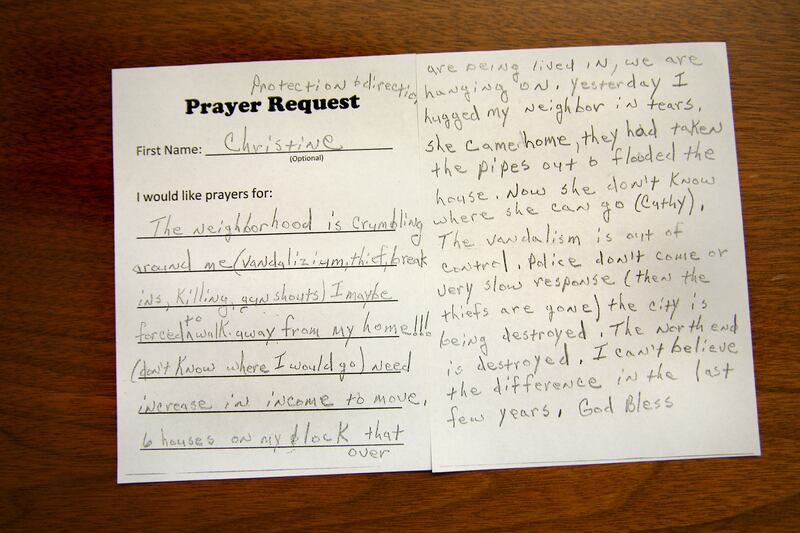 Protection & direction
Prayer Request
First Name: Christine
(Optional)
I would like prayers for:
The neighborhood is crumbling
around me (vandalizium, thief, break
ins, killing, gun shouts) I maybe
forced to walk away from my home!!!
(don't know where I would go) need
increase in income to move,
6 houses on my block that
over
are being lived in, we are
hanging on. Yesterday I
hugged my neighbor in tears,
she came home, they had taken
the pipes out & flooded the
house. Now she don't know
where she can go (Cathy).
The vandalism is out of
control. Police don't come or
very slow response (then the
thiefs are gone) the city is
being destroyed. The north end
is destroyed. I can't believe
the difference in the last
few years, God Bless